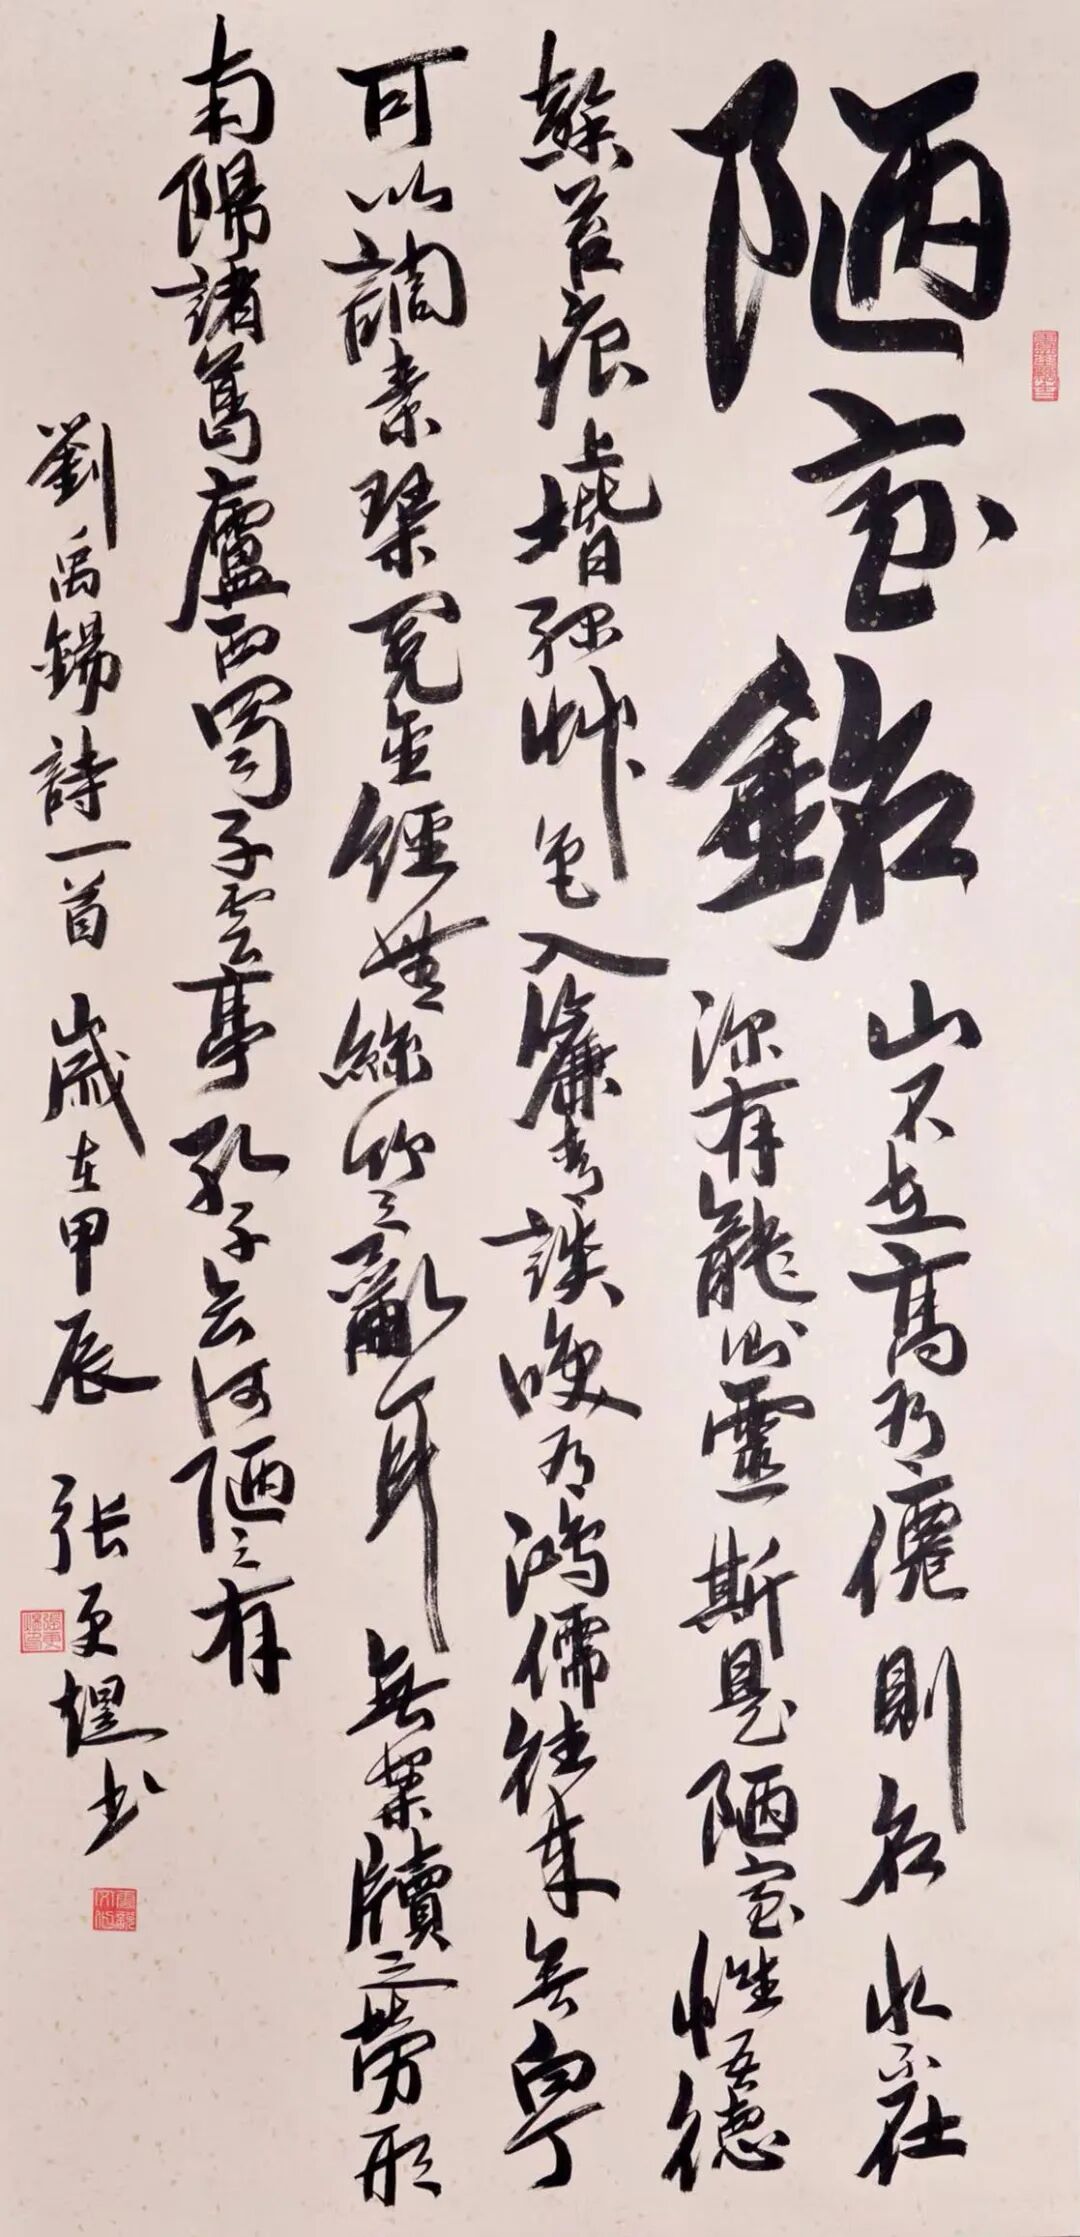 陋室銘
山不在高有僊則名水不在
深有龍則靈斯是陋室惟吾德
馨苔痕上堦綠艸色入簾青談咲有鴻儒往來無白丁
可以調素琴閱金經無絲竹之亂耳無案牘之勞形
南陽諸葛廬西蜀子雲亭孔子云何陋之有
劉禹錫詩一首 歲在甲辰 張更書